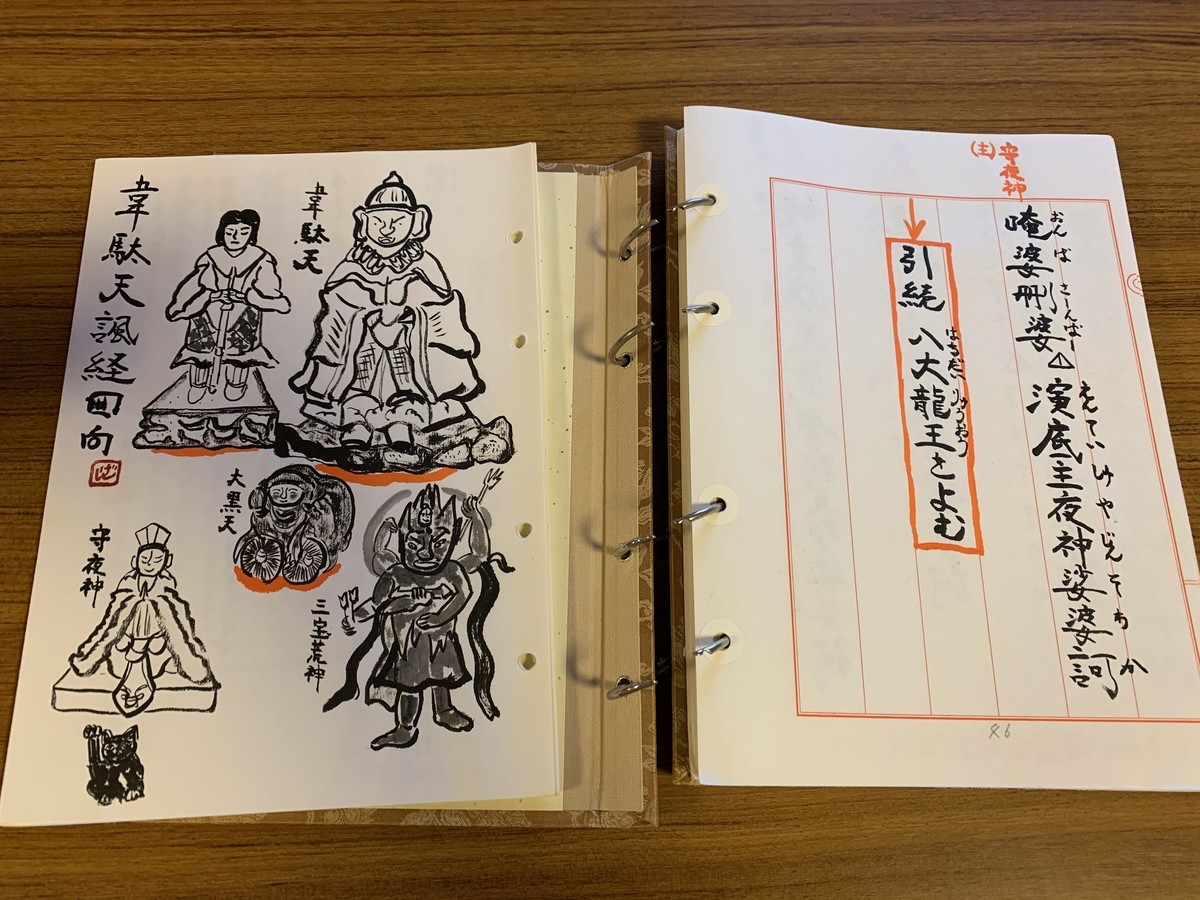 韋駄天諷経回向
韋駄天
大黒天
守夜神
三宝荒神
(主)守夜神
唵婆刪婆 演底主夜神娑婆訶
おん ば さーんばー えんていしゅやじんそわか
引続 八大龍王をよむ
はちだいりゅうおう
46